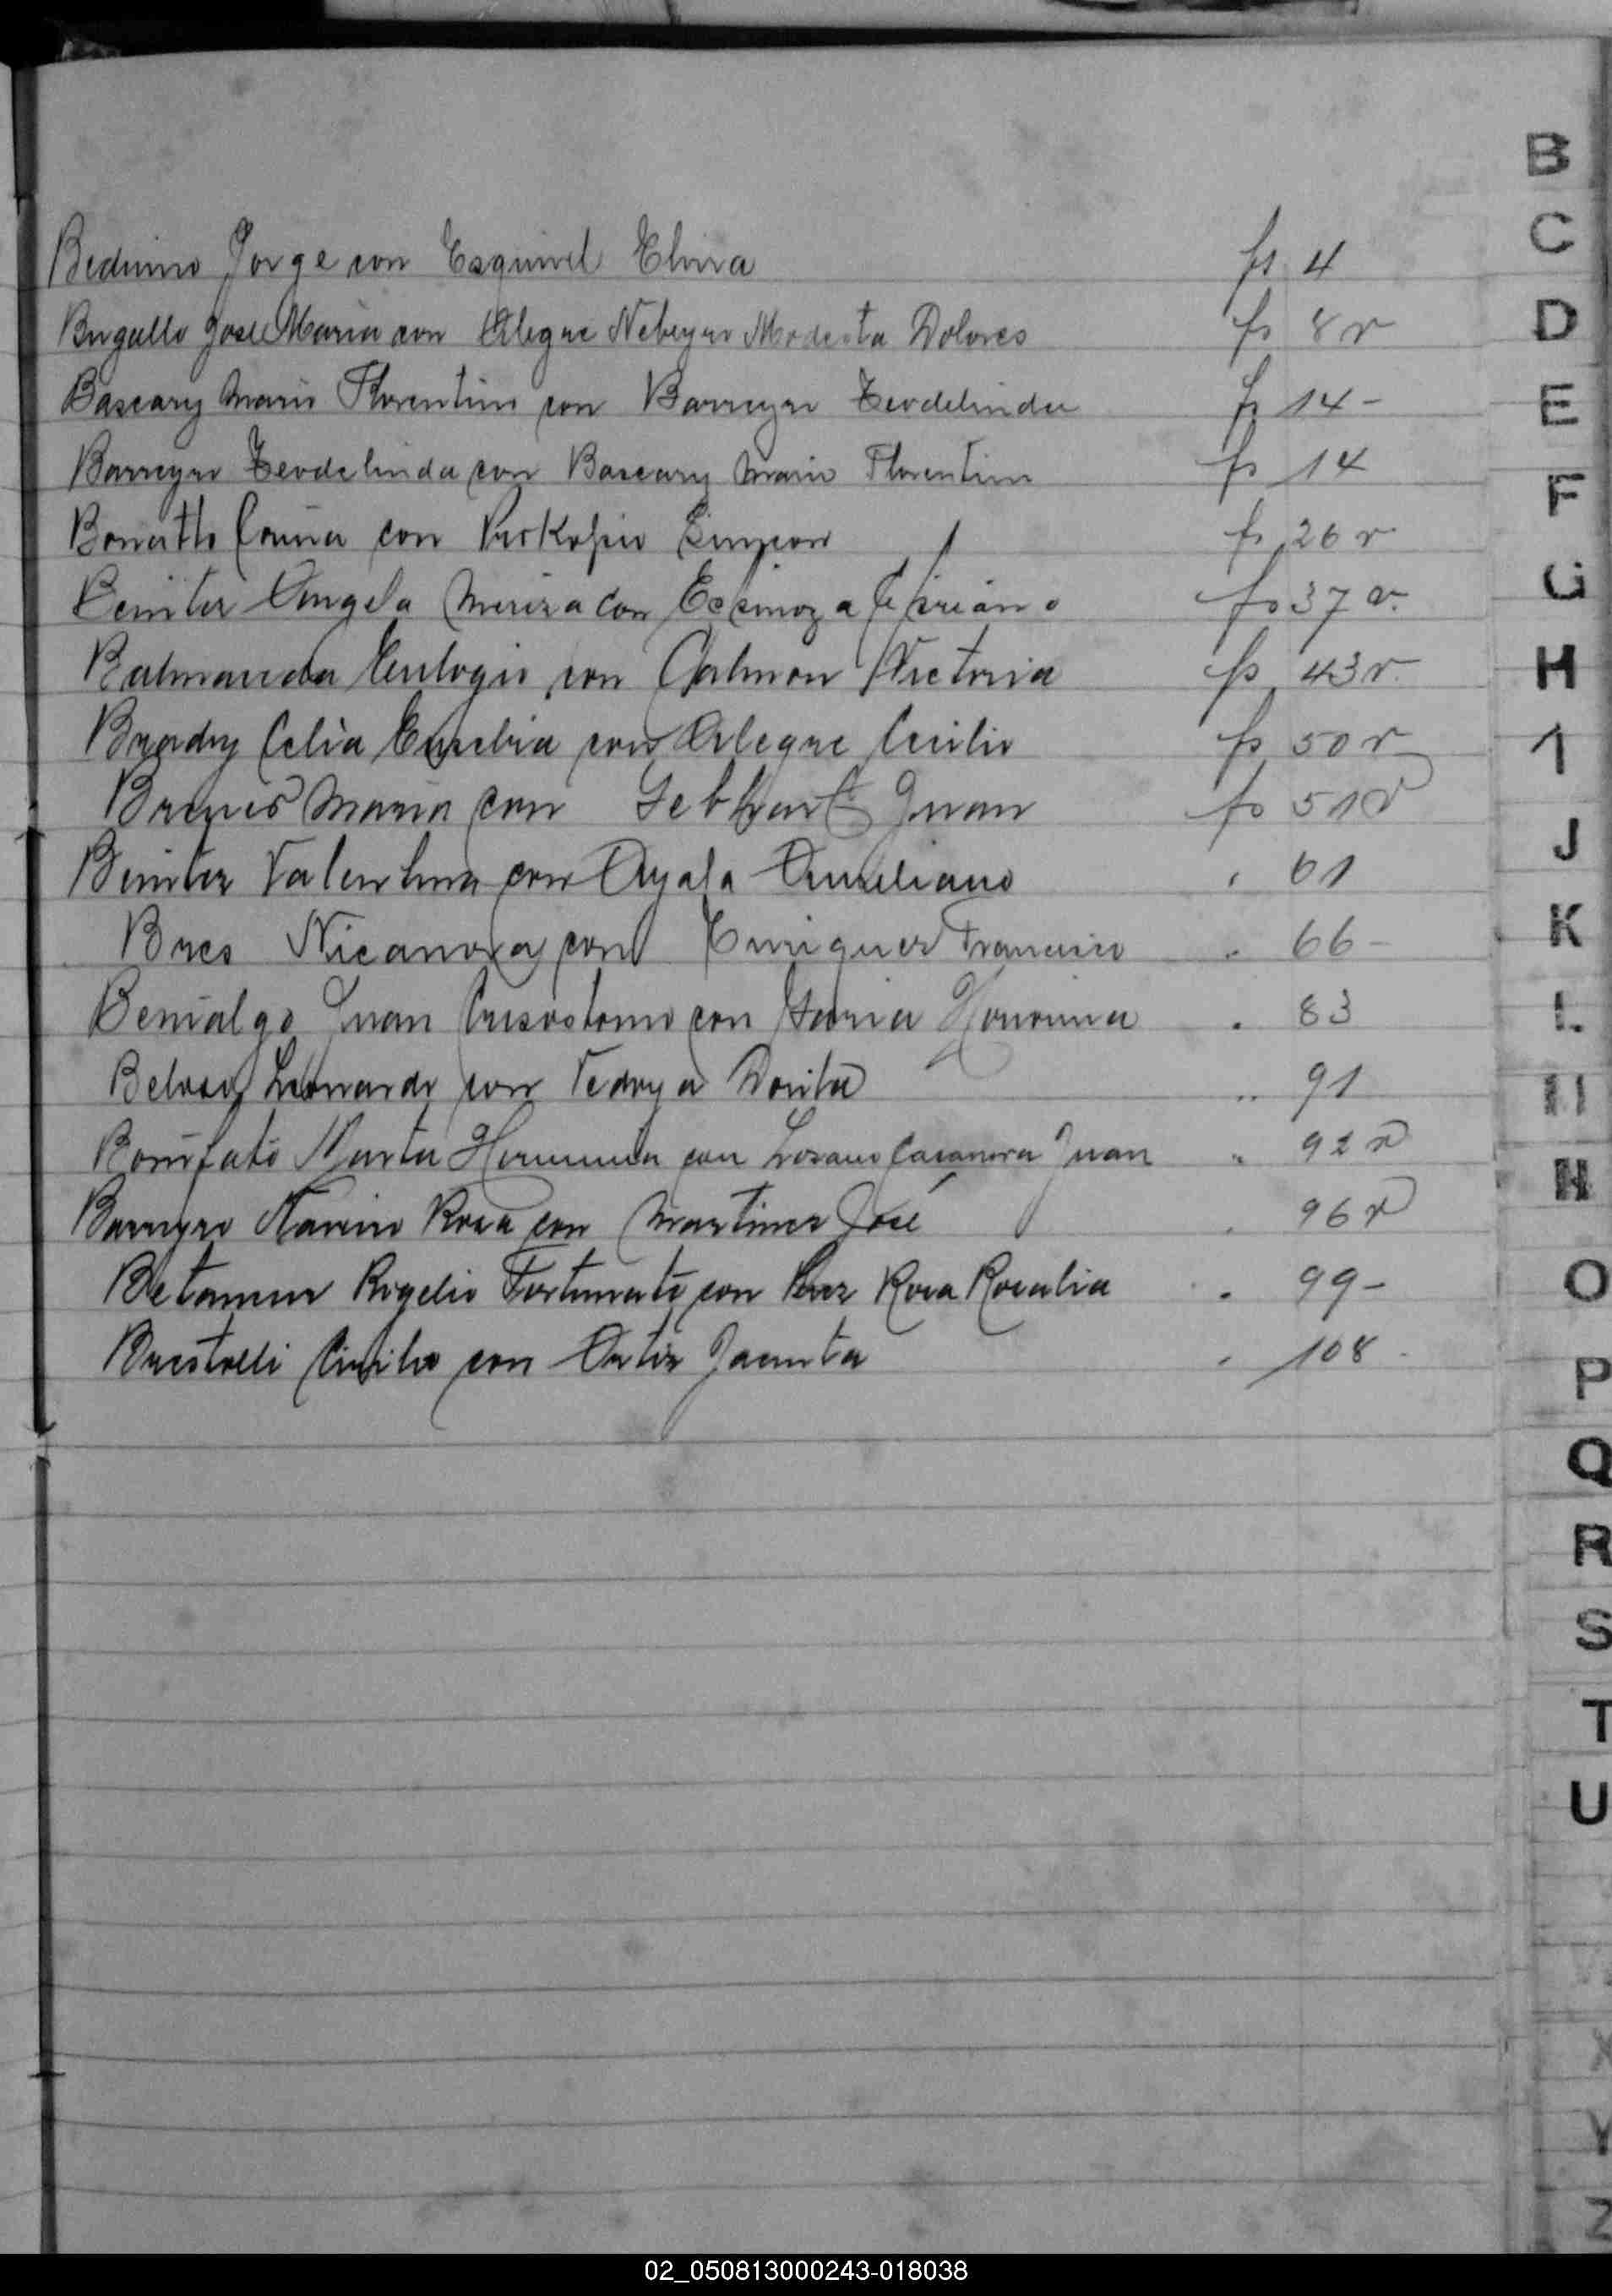 Jorge con Esquivel Elvira fs 4
Bugallo José Maria con Alegre Nebeyro Modesta Dolores fs 8 v
Bascary Mario Florentino con Barreyro Teodelinda fs 14 -
Barreyro Teodelinda con Bascary Mario Florentino fs 14
Bonatto con Simeon fs 26 v
Benitez Angela con Espinoza Cipriano fs 37 v.
Balmaceda Eulogio con Victoria fs 43 v.
Celia Eusebia con Alegre Cecilio fs 50 v
Maria con Juan fs 51 v
Benitez Valentina con Ayala Aureliano " 61
Bres Nicanora con Enriquez Francisco " 66 -
Benialgo Juan Crisostomo con Honorina " 83
Leonardo con Dorita " 91
Bonifato Marta Herminia con Lozano Casanova Juan " 92 v
Barreyro Rosa con Martinez José " 96 v
Betancur Rogelio Fortunato con Perez Rosa Rosalia " 99 -
Cirilo con Ortiz Jacinta " 108 -
B
C
D
E
F
G
H
1
J
K
L
M
N
O
P
Q
R
S
T
U
X
Y
Z
02_050813000243-018038